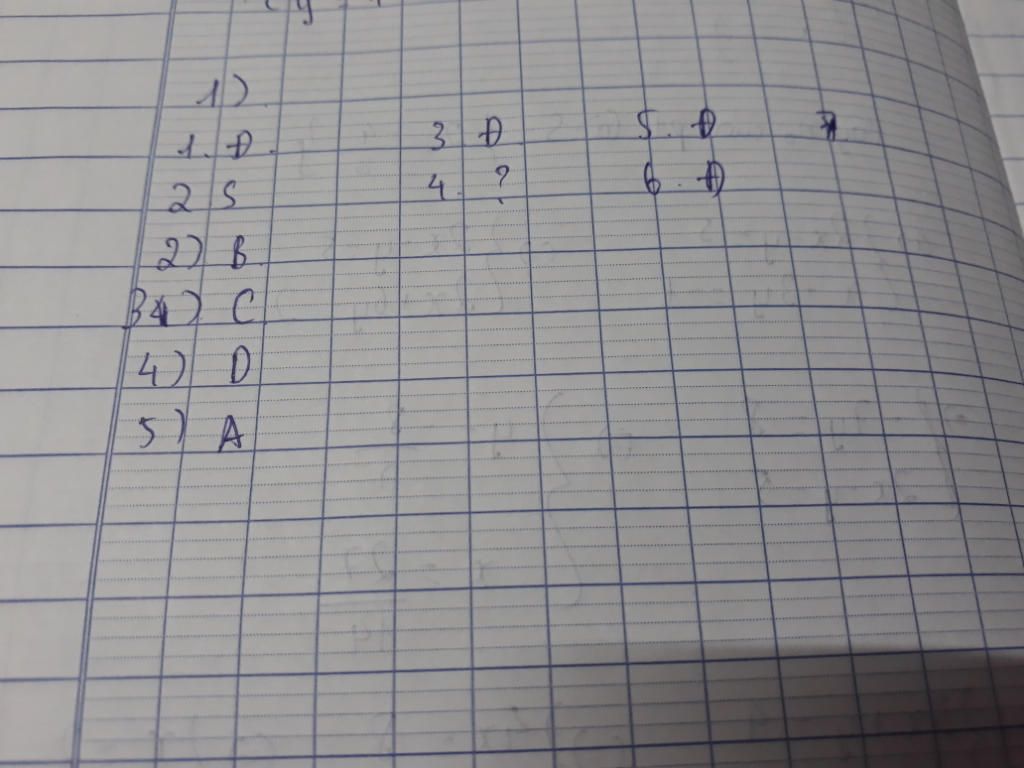 1)
1. Đ. 3 Đ 5. Đ
2 S 4. ? 6. Đ
2) B
3) C
4) D
5) A